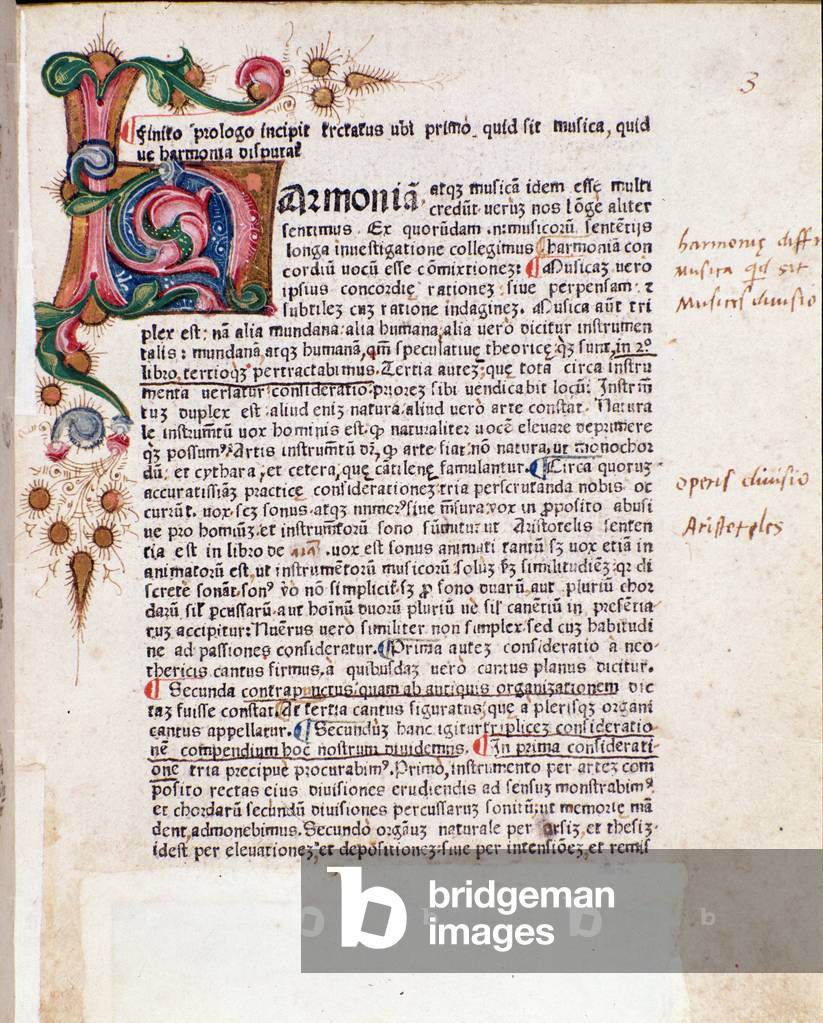 3
Finito prologo incipit trctatus ubi primo quid sit musica, quid
ue harmonia disputat̃
ARmoniã atqȝ musicã idem esse multi
credũt ueruȝ nos lõge aliter
sentimus. Ex quorũdam musicorũ sentẽtijs
longa inuestigatione collegimus harmoniã con
cordiũ uocũ esse cõmixtioneȝ: Musicaȝ uero
ipsius concordie rationeȝ siue perpensam ⁊
subtileȝ cuȝ ratione indagineȝ. Musica aũt tri
plex est: nã alia mundana: alia humana: alia uero dicitur instrumen
talis: mundanã atqȝ humanã, qm̃ speculatiue theorice qȝ sunt, in 2º
libro tertioqȝ pertractabimus. Tertia auteȝ que tota circa instru
menta uersatur consideratio prioreȝ sibi uendicabit locũ. Instrm̃
tuȝ duplex est: aliud eniȝ natura: aliud uero arte constat. Natura
le instrumẽtũ uox hominis est. qꝑ naturaliter uocẽ eleuare deprimere
qȝ possum⁹. Artis instrumẽtũ dr̃, qꝑ arte fiat nõ natura, ut monochor
dũ: et cythara, et cetera, que cãtilenę famulantur. Circa quoruȝ
accuratissiãȝ practice consideratioeȝ tria perscrutanda nobis oc
currũt. uox. scȝ sonus. atqȝ numer⁹ siue mẽsura: uox in ꝓposito abusi
ue pro hominȝ et instrumẽtorũ sono sũitur ut Aristotelis senten
tia est in libro de aĩa. uox est sonus animati tantũ sȝ uox etiã in
animatorũ est, ut instrumẽtorũ musicorũ soluȝ ꝑ similitudineȝ: qr di
screte sonãt. son⁹ ṽo nõ simplicit̃. sȝ ꝓ sono duarũ aut pluriũ chor
darũ sil̃ ꝑcussarũ. aut hoĩnũ duorũ pluriũ ue sil̃ canẽtiũ in presẽtia
ruȝ accipitur: Nũerus uero similiter non simplex sed cuȝ habitudi
ne ad passiones consideratur. Prima auteȝ consideratio a neo
thericis cantus firmus, a quibusdaȝ uero cantus planus dicitur.
Secunda contrapunctus: quam ab antiquis organizationem dic
taȝ fuisse constat. At tertia cantus figuratus: que a plerisqȝ organi
cantus appellatur. Secunduȝ hanc igitur triplicẽ consideratio
nẽ compendium hoc nostrum diuidemus. In prima considerati
one tria precipue procurabim⁹. Primo, instrumento per arteȝ com
posito rectas eius diuisiones erudiendis ad sensuȝ monstrabim⁹
et chordarũ secundũ diuisiones percussaruȝ sonitũ: ut memorie mã
dent, admonebimus. Secundo orgãuȝ naturale per arsiȝ et thesiȝ
idest per eleuationeȝ et depositioneȝ siue per intensiõeȝ et remis
harmonię diff
musica qd sit
Musices diuisio
operis diuisio
Aristoteles
bridgeman
images